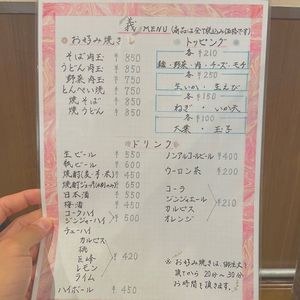 義 MENU (商品は全て税込み価格です)
お好み焼き
そば肉玉 ¥850
うどん肉玉 ¥850
野菜肉玉 ¥750
とんぺい焼 ¥750
焼そば ¥850
焼うどん ¥850
トッピング
各 ¥210
麺・野菜・肉・チーズ・モチ
各 ¥250
生いか・生えび
各 ¥150
ねぎ・いか天
各 ¥100
大葉・玉子
ドリンク
生ビール ¥550
瓶ビール ¥600
焼酎(麦・芋・米) ¥450
焼酎ジョッキ ¥650
日本酒 ¥550
梅酒 ¥450
コークハイ
ジンジャーハイ ¥500
チューハイ
カルピス
桃
巨峰 ¥420
レモン
ライム
ハイボール ¥450
ノンアルコールビール ¥400
ウーロン茶 ¥200
コーラ
ジンジャエール
カルピス ¥210
オレンジ
※お好み焼きは、御注文を
頂いてから20分〜30分
お時間を頂きます。